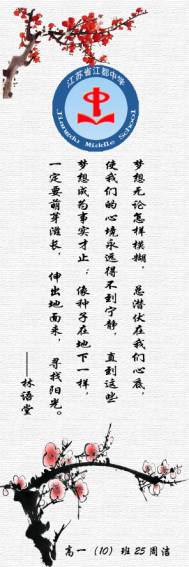 江苏省江都中学
Jiangdu Middle School
梦想无论怎样模糊，总潜伏在我们心底，
使我们的心境永远得不到宁静，直到这些
梦想成为事实才止；像种子在地下一样，
一定要萌芽滋长，伸出地面来，寻找阳光。
——林语堂
高一（10）班25周洁